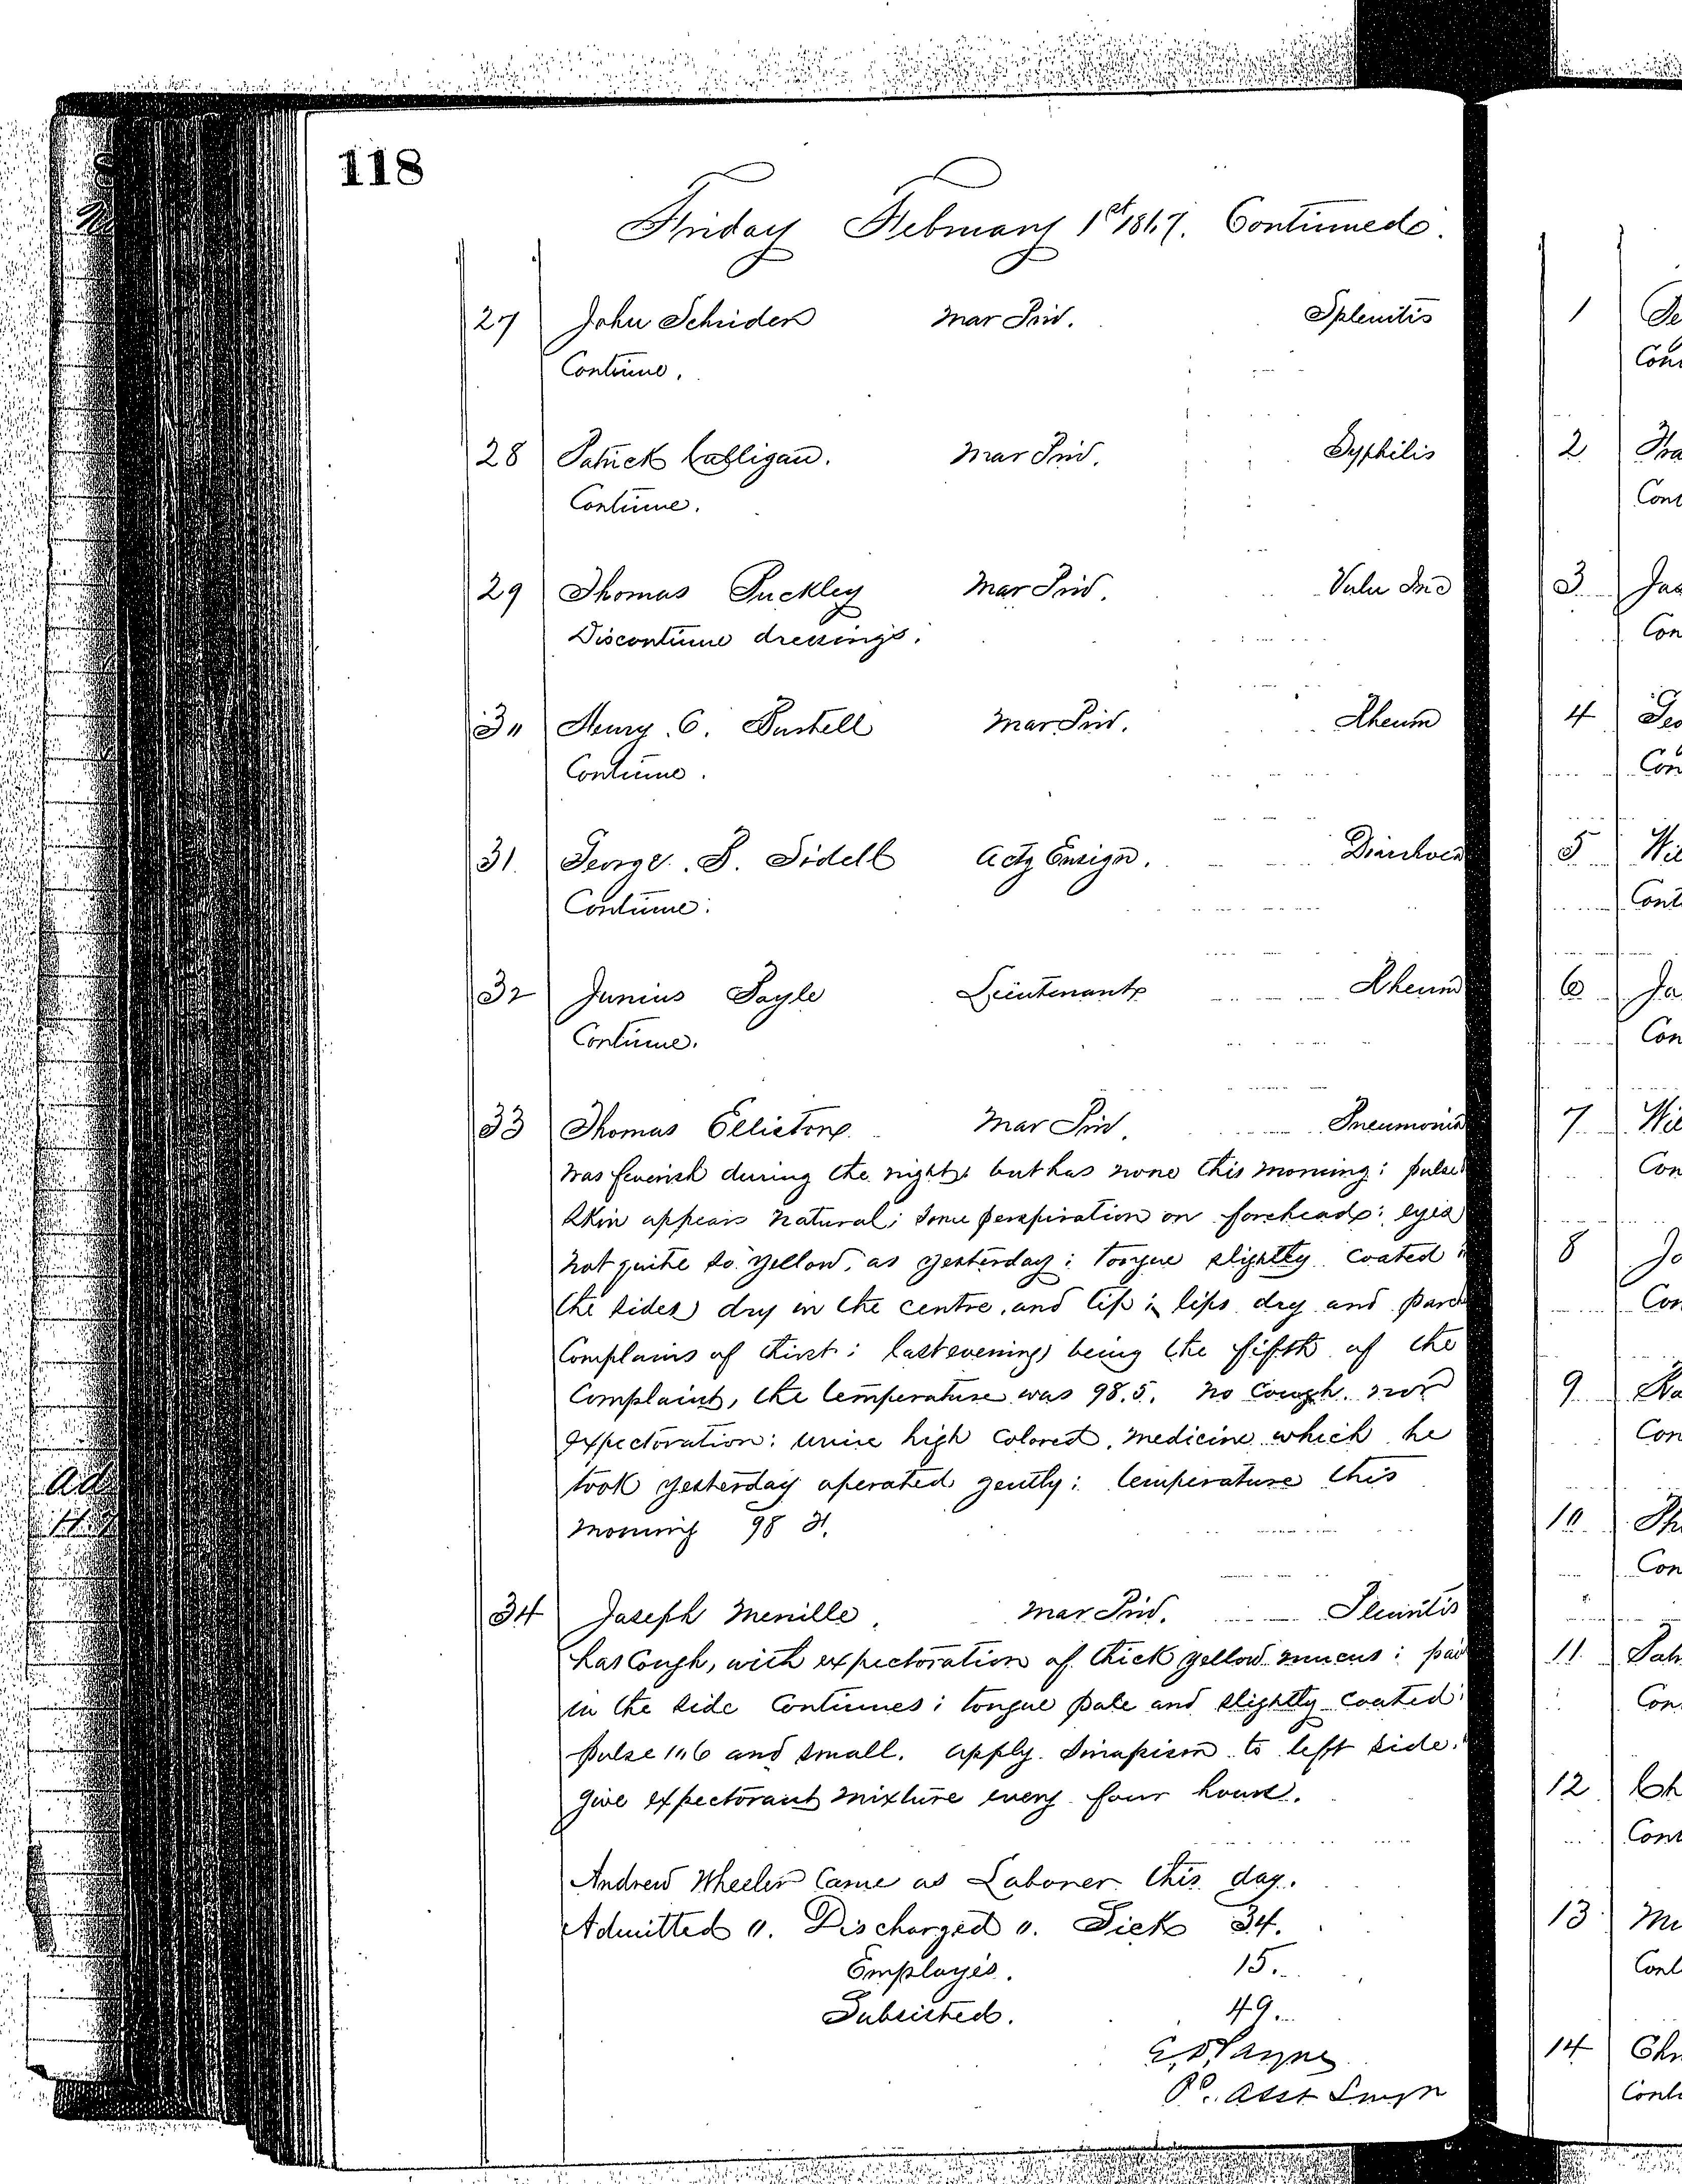 118
Friday February 1st 1867. Continued.
27 John Schrider Mar Priv. Splenitis
Continue.
28 Patrick Calligan. Mar Priv. Syphilis
Continue.
29 Thomas Puckley Mar Priv. Vuln Inc
Discontinue dressings.
30 Henry C. Pustell Mar Priv. Rheum
Continue.
31 George. S. Sidell Actg Ensign. Diarrhoea
Continue.
32 Junius Sayle Lieutenant Rheum
Continue.
33 Thomas Ellistone. Mar Priv. Pneumonia
was feverish during the night; but has none this morning: pulse
skin appears natural; some perspiration on forehead: eyes
not quite so yellow, as yesterday: tongue slightly coated
the sides dry in the centre, and tip; lips dry and
Complains of thirst: last evening being the fifth of the
Complaint, the temperature was 98.5. no cough. nor
expectoration: urine high colored. medicine which he
took yesterday operated gently: temperature this
morning 98
34 Joseph Menille. Mar Priv. Pleuritis
has Cough, with expectoration of thick yellow mucus: pain
in the side Continues; tongue pale and slightly coated
pulse 106 and small. apply sinapism to left side.
give expectorant mixture every four hours.
Andrew Wheeler Came as Laborer this day.
Admitted 0. Discharged 0. Sick 34.
Employés. 15.
Subsisted. 49.
Payne
Pd. Asst Surgn
1
Con
2
Con
3
Con
4
Con
5
Cont
6
Con
7
Con
8
Con
9
Con
10
Con
11
Con
12
Cont
13
Cont
14
Cont